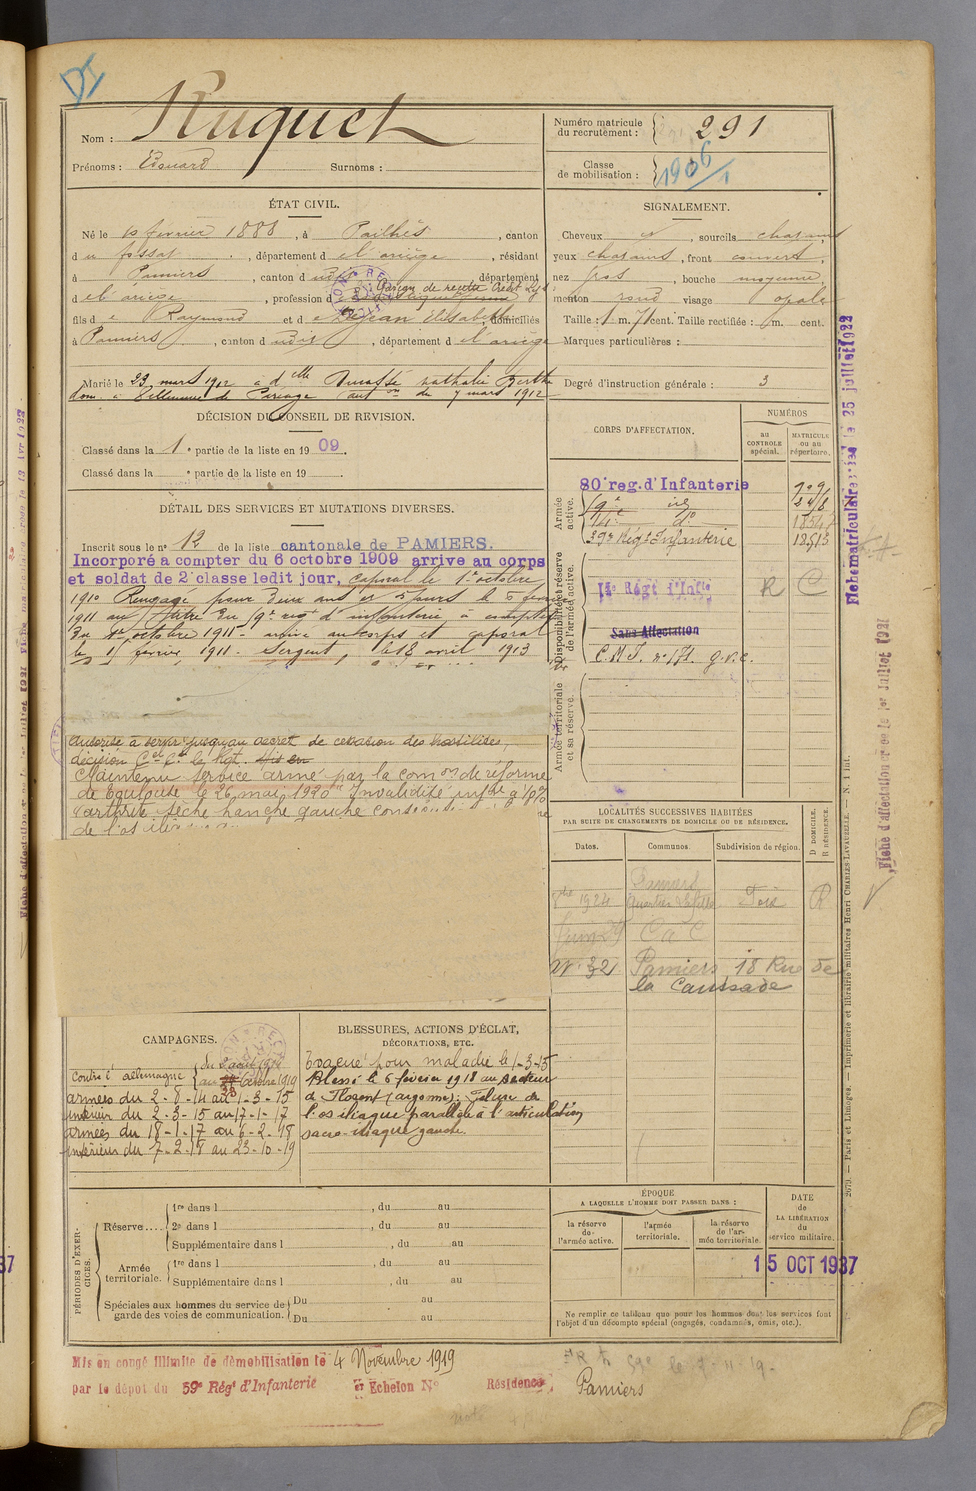 Nom : Huquet
Prénoms : Edouard Surnoms :
Numéro matricule du recrutement : 291
Classe de mobilisation : 1906/1
ÉTAT CIVIL.
Né le 10 février 1888, à Pailhès, canton
du fossat, département de l'ariège, résidant
à Pamiers, canton d udit, département
Garçon de recette Crédit Lyonnais
de l'ariège, profession d
fils de Raymond et de Dejean Elisabeth, domiciliés
à Pamiers, canton d udit, département de l'ariège
Marié le 23 mars 1912 à delle nathalie Berthe
dom. à Villeneuve de Paréage auton du 7 mars 1912
SIGNALEMENT.
Cheveux , sourcils chatains
yeux chatains, front couvert,
nez gros, bouche moyenne
menton rond visage ovale
Taille : 1 m. 71 cent. Taille rectifiée : m. cent.
Marques particulières :
Degré d'instruction générale : 3
DÉCISION DU CONSEIL DE REVISION.
Classé dans la 1e partie de la liste en 1909.
Classé dans la e partie de la liste en 19 .
DÉTAIL DES SERVICES ET MUTATIONS DIVERSES.
Inscrit sous le n° 12 de la liste cantonale de PAMIERS.
Incorporé à compter du 6 octobre 1909 arrive au corps
et soldat de 2e classe ledit jour, caporal le 1er octobre
1910 Rengagé pour deux ans et 5 jours le 6 février
1911 au titre du 9e régt d'infanterie à compter
du 1er octobre 1911 - arrivé au corps et caporal
le février 1911. Sergent, le 18 avril 1913
Autorisé à servir jusqu'au décret de cessation des hostilités,
décision Cel Ct le Rgt. Mis en
Maintenu service armé par la comon de réforme
de Toulouse le 26 mai 1920 Invalidité infre à 10%
arthrite sèche hanche gauche
de l'os
CORPS D'AFFECTATION.
NUMÉROS
au CONTROLE spécial.
MATRICULE ou au répertoire.
Armée active.
80e rég. d'Infanterie
9e die
14e do
59e Régt Infanterie 12513
Disponibilité et réserve de l'armée active.
14e Régt d'Infie R C
Sans Affectation
C.M.I. n° 171. G.V.C.
Armée territoriale et sa réserve.
LOCALITÉS SUCCESSIVES HABITÉES
PAR SUITE DE CHANGEMENTS DE DOMICILE OU DE RÉSIDENCE.
Dates. Communes. Subdivision de région. D DOMICILE. R RÉSIDENCE.
1924 Pamiers quartier Foix R
C a C
32 Pamiers, 18 Rue de
la Caussade
CAMPAGNES.
Contre l'allemagne du 2 août 1914
au 23 octobre 1919
armées du 2-8-14 au 1-3-15
intérieur du 2-3-15 au 17-1-17
armées du 18-1-17 au 6-2-18
intérieur du 7-2-18 au 23-10-19
BLESSURES, ACTIONS D'ÉCLAT,
DÉCORATIONS, ETC.
Evacué pour maladie le 1-3-15
Blessé le 6 février 1918 au secteur
de Florent (argonne): Felure de
l'os iliaque parallèle à l'articulation
sacro-iliaque gauche.
PÉRIODES D'EXERCICES.
Réserve.... 1re dans l , du au
2e dans l , du au
Supplémentaire dans l , du au
Armée territoriale. 1re dans l , du au
Supplémentaire dans l , du au
Spéciales aux hommes du service de garde des voies de communication. Du au
Du au
ÉPOQUE
A LAQUELLE L'HOMME DOIT PASSER DANS :
la réserve de l'armée active.
l'armée territoriale.
la réserve de l'armée territoriale.
DATE de LA LIBÉRATION du service militaire.
15 OCT 1937
Ne remplir ce tableau que pour les hommes dont les services font
l'objet d'un décompte spécial (engagés, condamnés, omis, etc.).
Mis en congé illimité de démobilisation le 4 Novembre 1919
par le dépot du 59e Régt d'Infanterie er Echelon N° Résidence Pamiers
Fiche matriculaire le 25 juillet 1922
Fiche d'affectation le 1er Juillet 1921
2679. — Paris et Limoges. — Imprimerie et librairie militaires Henri CHARLES-LAVAUZELLE. — N. 1 int.